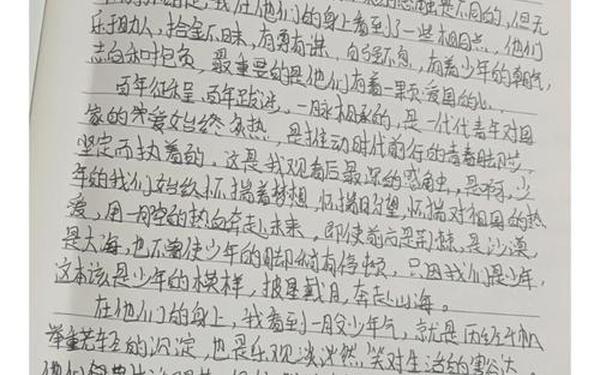 我在他们的身上看到了一些相同点，他们
乐于助人，拾金不昧，有勇有谋，自强不息，有着少年的朝气，
志向和抱负，最重要的是他们有着一颗爱国的心
百年征程，百年跋涉，一脉相承的，是一代代青年对国
家的热爱始终炙热，是推动时代前行的青春脚步
坚定而执着的。这是我观看后最深的感触，是啊，少
年的我们始终怀揣着梦想，怀揣盼望，怀揣对祖国的热
爱，用一腔的热血奔赴未来，即使前方是荆棘，是沙漠
是大海，也不会使少年的脚步有停顿，只因我们是少年，
这本该是少年的模样，披星戴月，奔赴山海。
在他们的身上，我看到一股少年气，就是历经千帆
举重若轻的沉淀，也是乐观淡然笑对生活的豁达。